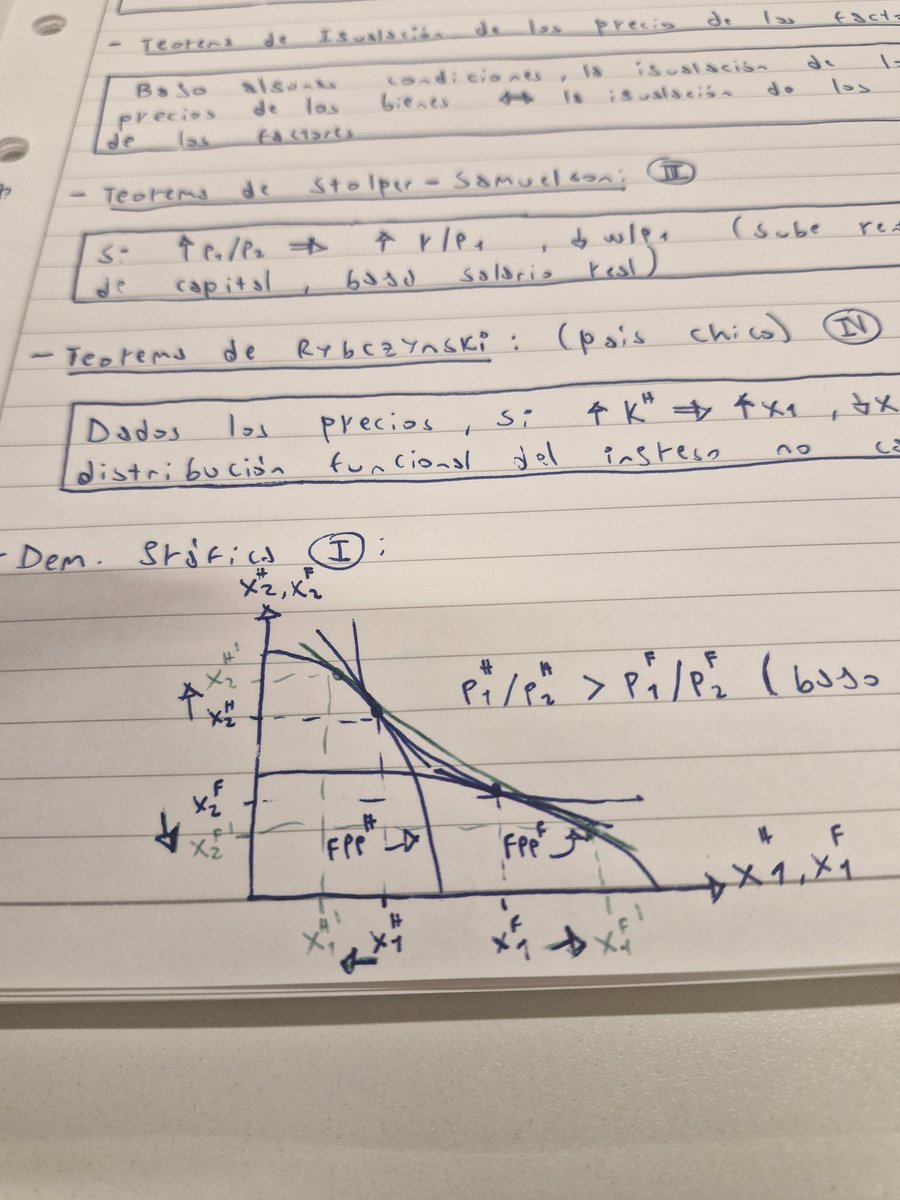 - Teorema de Igualación de los precios de los fact
Bajo algunas condiciones, la igualación de l
precios de los bienes ↔ la igualación de los
de los factores
- Teorema de Stolper-Samuelson: III
Si ↑ P1/P2 ⇒ ↑ r/P1 , ↓ w/P1 (sube re
de capital, baja salario real)
- Teorema de Rybczynski: (país chico) IV
Dados los precios, si ↑ K^H ⇒ ↑ X1 , ↓ X
distribución funcional del ingreso no ca
- Dem. Gráfica I :
X2^H, X2^F
X2^H'
P1^H/P2^H > P1^F/P2^F (bajo
X2^H
X2^F
X2^F'
FPP^H
FPP^F
X1^H, X1^F
X1^H' X1^H X1^F X1^F'